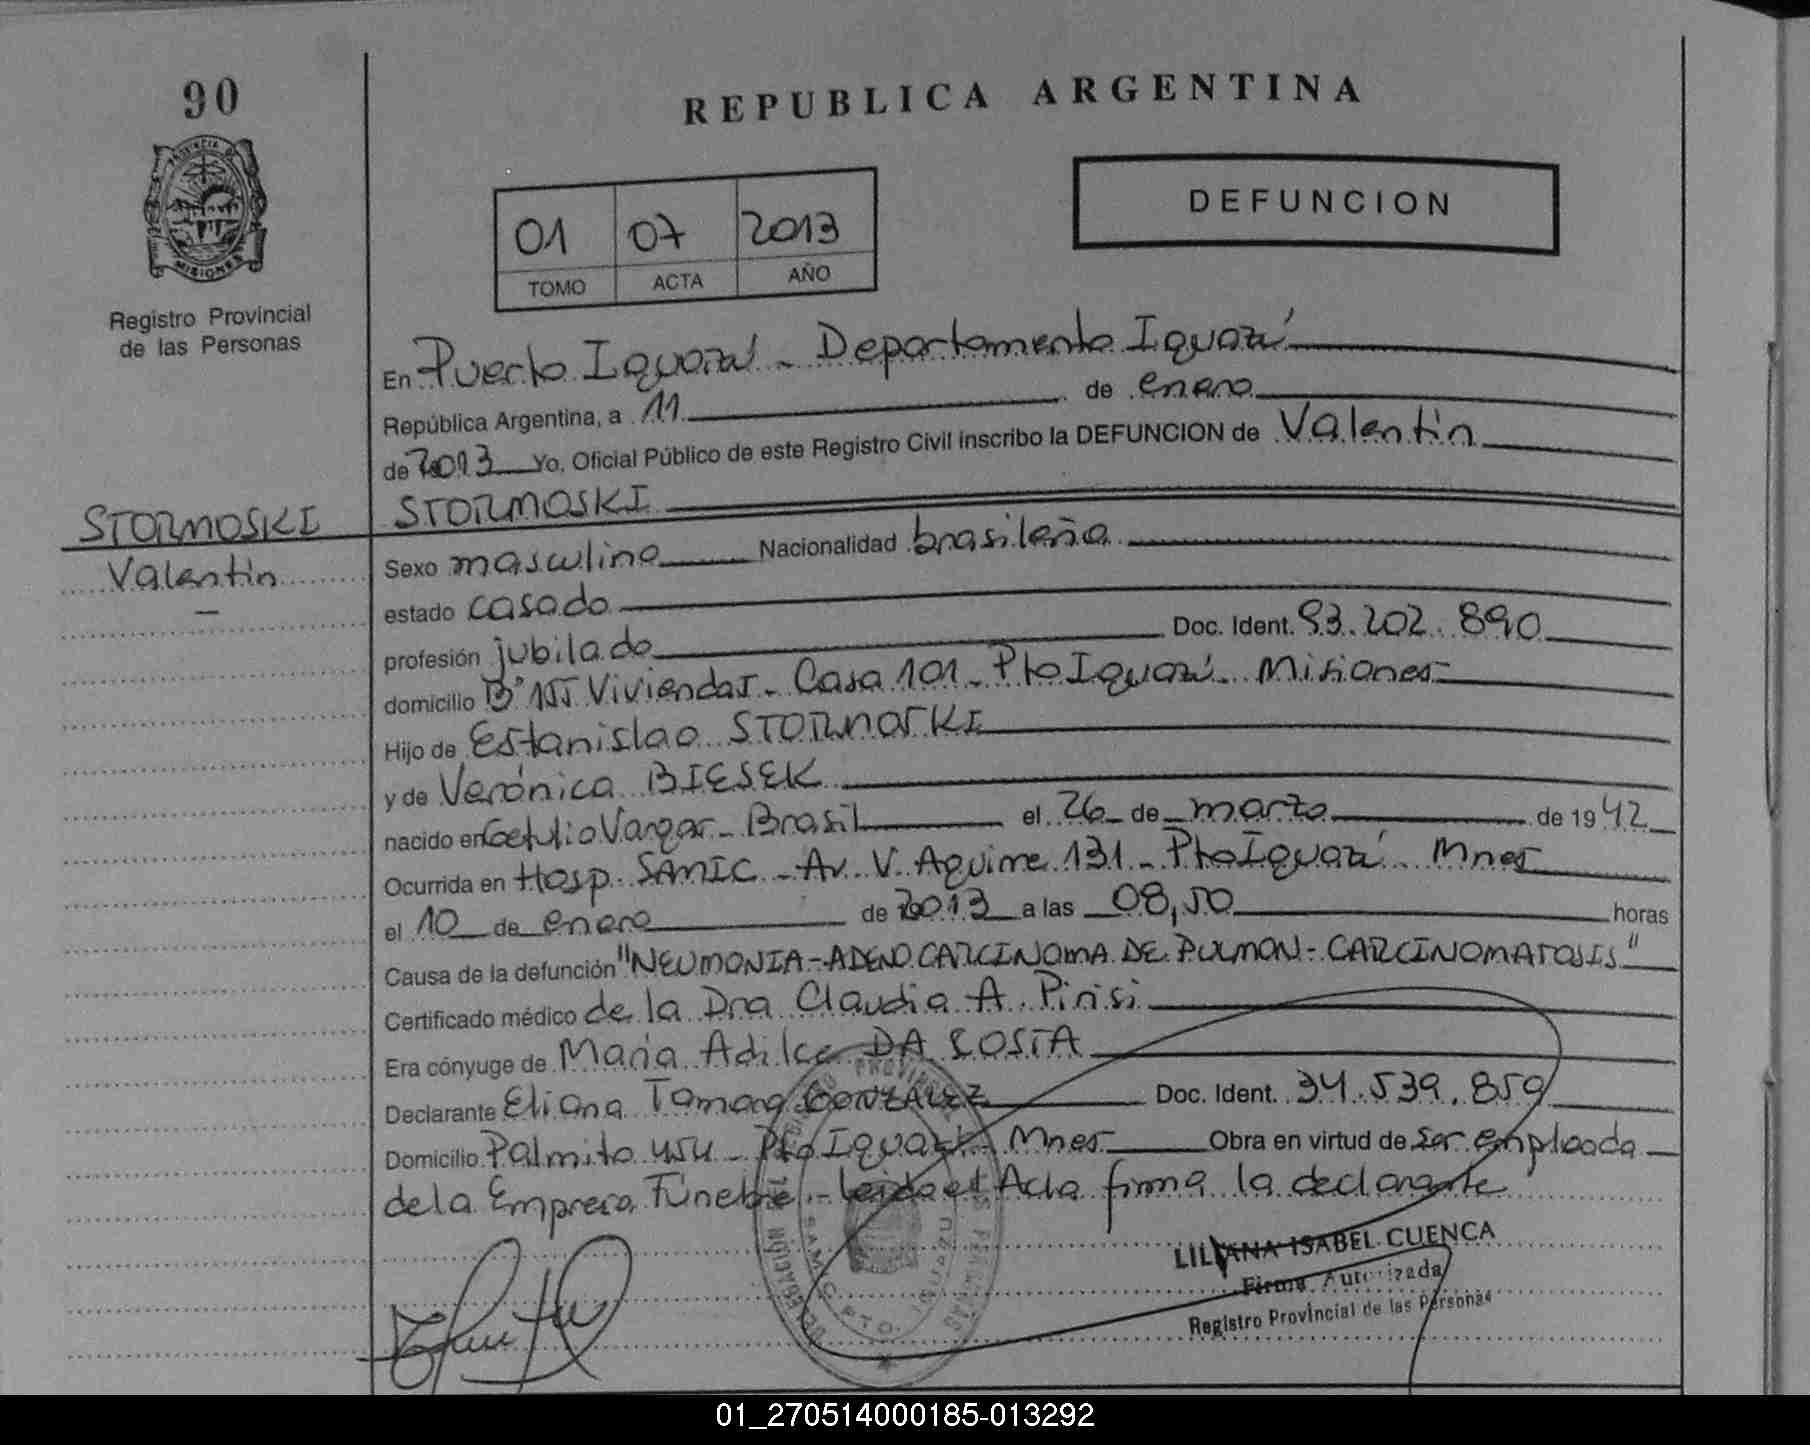 90
REPUBLICA ARGENTINA
PROVINCIA DE
MISIONES
Registro Provincial
de las Personas
01 07 2013
TOMO ACTA AÑO
DEFUNCION
En Puerto Iguazú - Departamento Iguazú
República Argentina, a 11 de enero
de 2013 Yo, Oficial Público de este Registro Civil inscribo la DEFUNCION de Valentín
STORMOSKI
STORMOSKI
Valentín
Sexo masculino Nacionalidad brasileña
estado casado
profesión jubilado Doc. Ident. 93.202.890
domicilio B° 155 Viviendas - Casa 101 - Pto Iguazú - Misiones
Hijo de Estanislao STORMOSKI
y de Verónica BIESEK
nacido en Getulio Vargas - Brasil el 26 de marzo de 1942
Ocurrida en Hosp. SAMIC - Av. V. Aguirre 131 - Pto Iguazú - Mnes
el 10 de enero de 2013 a las 08,50 horas
Causa de la defunción "NEUMONIA - ADENOCARCINOMA DE PULMON - CARCINOMATOSIS"
Certificado médico de la Dra Claudia A. Pirisi
Era cónyuge de Maria Adilce DA COSTA
Declarante Eliana Tamara GONZALEZ Doc. Ident. 34.539.859
Domicilio Palmito 454 - Pto Iguazú - Mnes Obra en virtud de ser empleada
de la Empresa Fúnebre - Leída el Acta firma la declarante
LILIANA ISABEL CUENCA
Firma Autorizada
Registro Provincial de las Personas
01_270514000185-013292